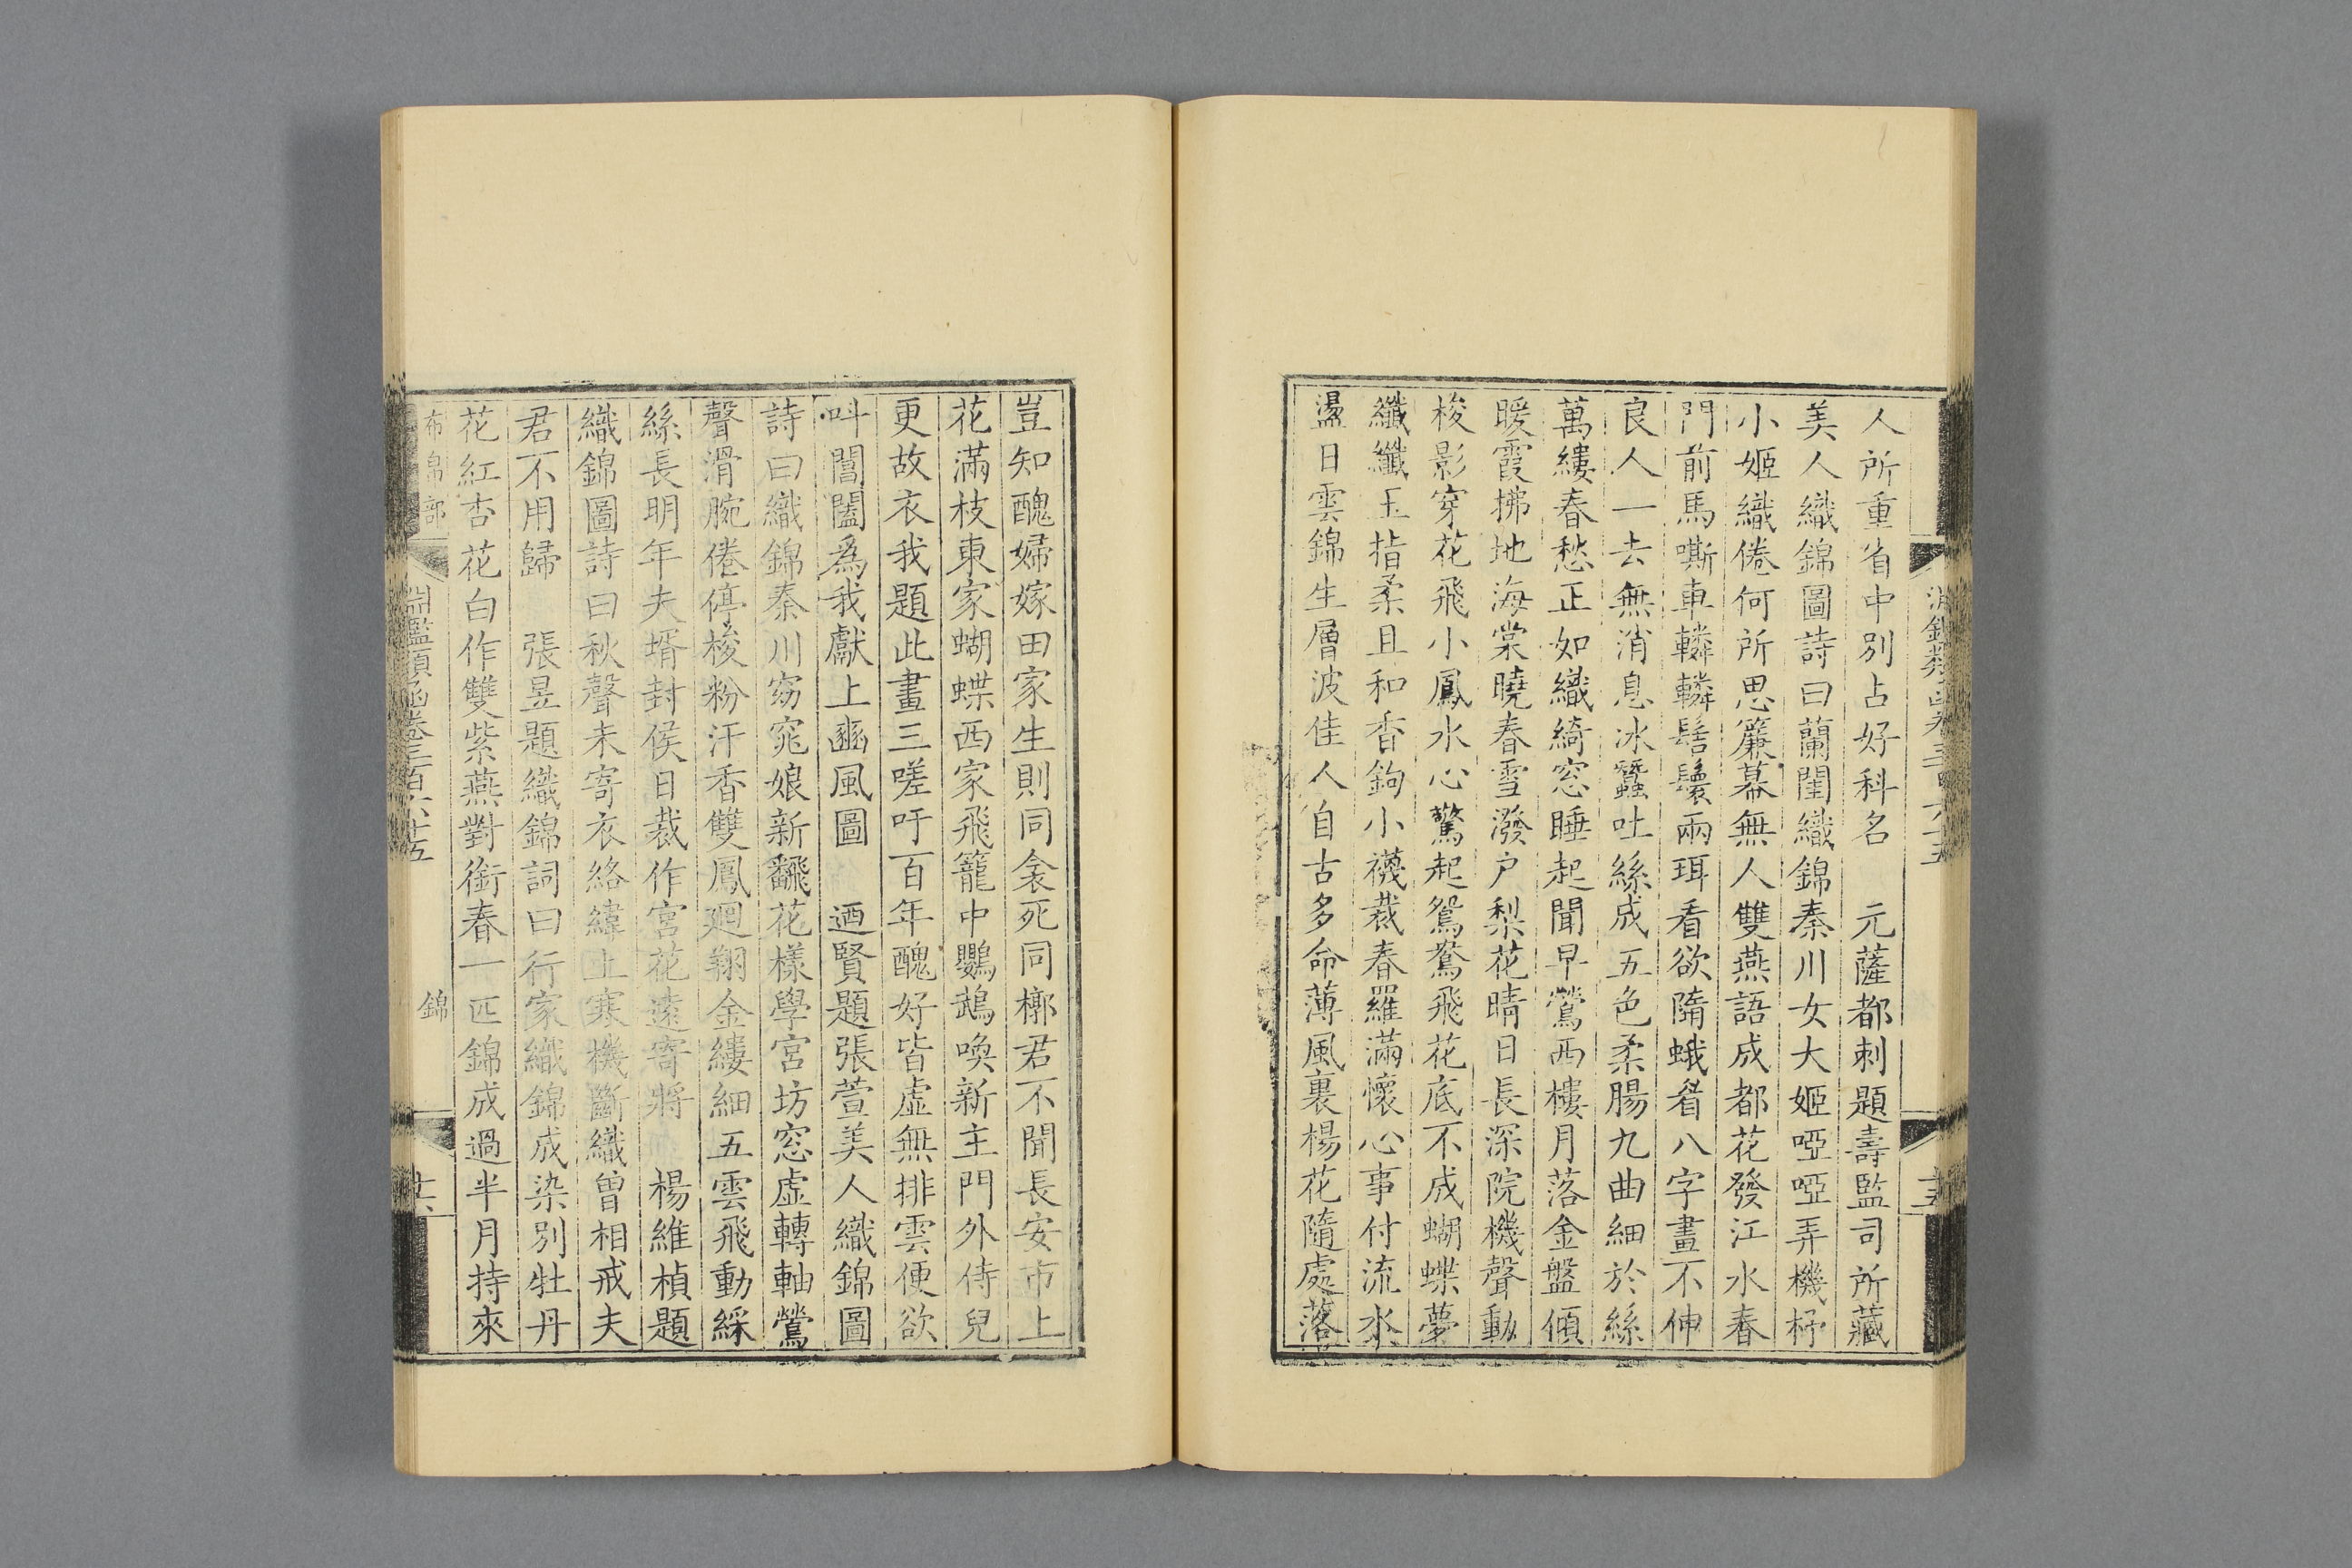 人所重省中別占好科名 元薩都剌題壽監司所藏
美人織錦圖詩曰蘭閨織錦秦川女大姬啞啞弄機杼
小姬織倦何所思簾幕無人雙燕語成都花發江水春
門前馬嘶車轔轔髻鬟兩珥看欲隋蛾眉八字畫不伸
良人一去無消息冰蠶吐絲成五色柔腸九曲細於絲
萬縷春愁正如織綺窓睡起聞早鶯西樓月落金盤傾
暖霞拂地海棠曉春雪潑户梨花晴日長深院機聲動
梭影穿花飛小鳳水心驚起鴛鴦飛花底不成蝴蝶夢
纖纖玉指柔且和香鉤小襪裁春羅滿懷心事付流水
盪日雲錦生層波佳人自古多命薄風裏楊花隨處落
豈知醜婦嫁田家生則同衾死同槨君不聞長安市上
花滿枝東家蝴蝶西家飛籠中鸚鵡喚新主門外侍兒
更故衣我題此畫三嗟吁百年醜好皆虛無排雲便欲
呌閶闔爲我獻上豳風圖 迺賢題張萱美人織錦圖
詩曰織錦秦川窈窕娘新飜花樣學宮坊窓虛轉軸鶯
聲滑腕倦停梭粉汗香雙鳳廻翔金縷細五雲飛動綵
絲長明年夫壻封侯日裁作宮花遠寄將 楊維楨題
織錦圖詩曰秋聲未寄衣絡緯上寒機斷織曾相戒夫
君不用歸 張昱題織錦詞曰行家織錦成染別牡丹
花紅杏花白作雙紫燕對銜春一匹錦成過半月持來
布帛部 淵鑑類函卷三百六十五 錦 廿六